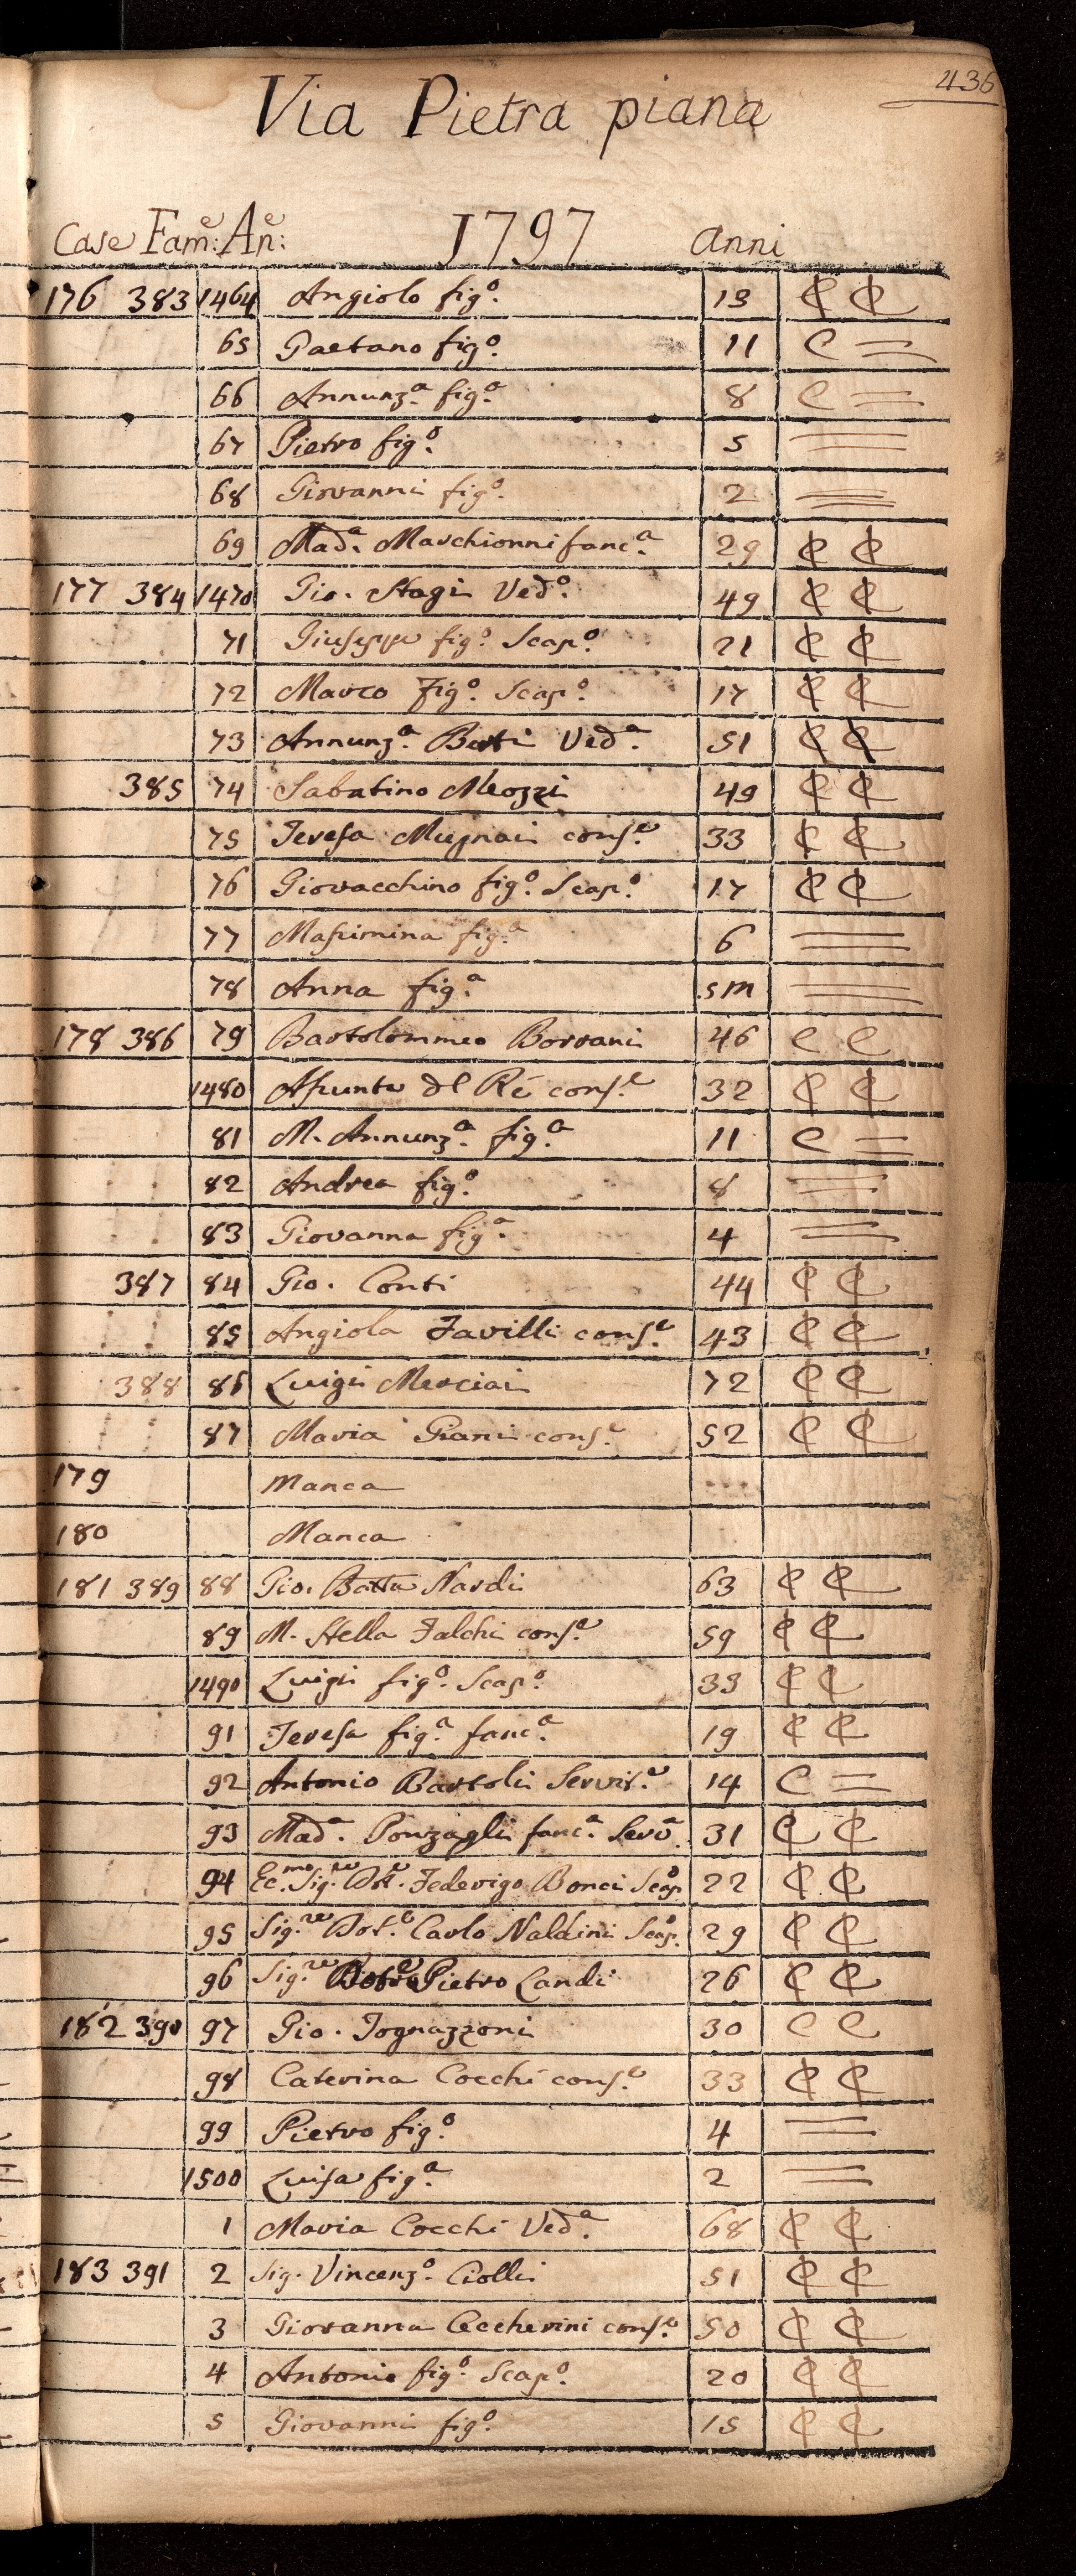 436
Via Pietra piana
Case Fam:e An:e 1797 anni
176 383 1464 Angiolo fig.o 13 ₵ ₵
65 Gaetano fig.o 11 C =
66 Annunz.a fig.a 8 C =
67 Pietro fig.o 5 =
68 Giovanni fig.o 2 =
69 Mad.a Marchionni fanc.a 29 ₵ ₵
177 384 1470 Gio. Stagi Ved.o 49 ₵ ₵
71 Giuseppe fig.o Scap.o 21 ₵ ₵
72 Marco fig.o Scap.o 17 ₵ ₵
73 Annunz.a Berti Ved.a 51 ₵ ₵
385 74 Sabatino Meozzi 49 ₵ ₵
75 Teresa Mugnai cons.e 33 ₵ ₵
76 Giovacchino fig.o Scap.o 17 ₵ ₵
77 Massimina fig.a 6 =
78 Anna fig.a 5m =
178 386 79 Bartolommeo Borrani 46 C C
1480 Assunta del Rè cons.e 32 ₵ ₵
81 M. Annunz.a fig.a 11 C =
82 Andrea fig.o 8 =
83 Giovanna fig.a 4 =
387 84 Gio. Conti 44 ₵ ₵
85 Angiola Favilli cons.e 43 ₵ ₵
388 86 Luigi Merciai 72 ₵ ₵
87 Maria Giani cons.e 52 ₵ ₵
179 Manca
180 Manca
181 389 88 Gio. Batta Nardi 63 ₵ ₵
89 M. Stella Falchi cons.e 59 ₵ ₵
1490 Luigi fig.o Scap.o 33 ₵ ₵
91 Teresa fig.a fanc.a 19 ₵ ₵
92 Antonio Bartoli Servit.e 14 C =
93 Mad.a Ponzagli fanc.a Serv.a 31 ₵ ₵
94 Ec.mo Sig.re Dot.e Federigo Bonci Scap.o 22 ₵ ₵
95 Sig.re Dot.e Carlo Naldini Scap.o 29 ₵ ₵
96 Sig.re Pietro Landi 26 ₵ ₵
182 390 97 Gio. Tognazzoni 30 C C
98 Caterina Cocchi cons.e 33 ₵ ₵
99 Pietro fig.o 4 =
1500 Luisa fig.a 2 =
1 Maria Cocchi Ved.a 68 ₵ ₵
183 391 2 Sig. Vincenz.o Ciolli 51 ₵ ₵
3 Giovanna Ceccherini cons.e 50 ₵ ₵
4 Antonio fig.o Scap.o 20 ₵ ₵
5 Giovanni fig.o 15 ₵ ₵